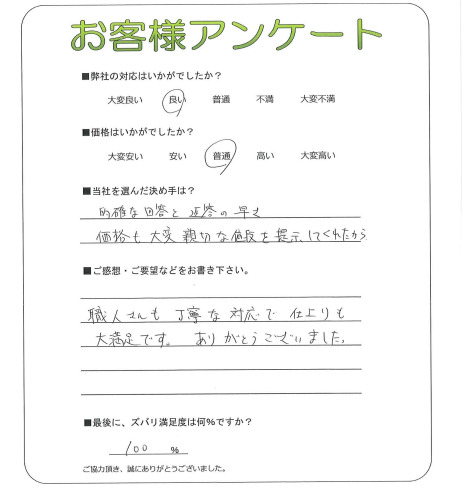 お客様アンケート
■弊社の対応はいかがでしたか？
大変良い 良い 普通 不満 大変不満
■価格はいかがでしたか？
大変安い 安い 普通 高い 大変高い
■当社を選んだ決め手は？
的確な回答と返答の早さ
価格も大変親切な値段を提示してくれたから
■ご感想・ご要望などをお書き下さい。
職人さんも丁寧な対応で仕上りも
大満足です。ありがとうございました。
■最後に、ズバリ満足度は何%ですか？
100 %
ご協力頂き、誠にありがとうございました。